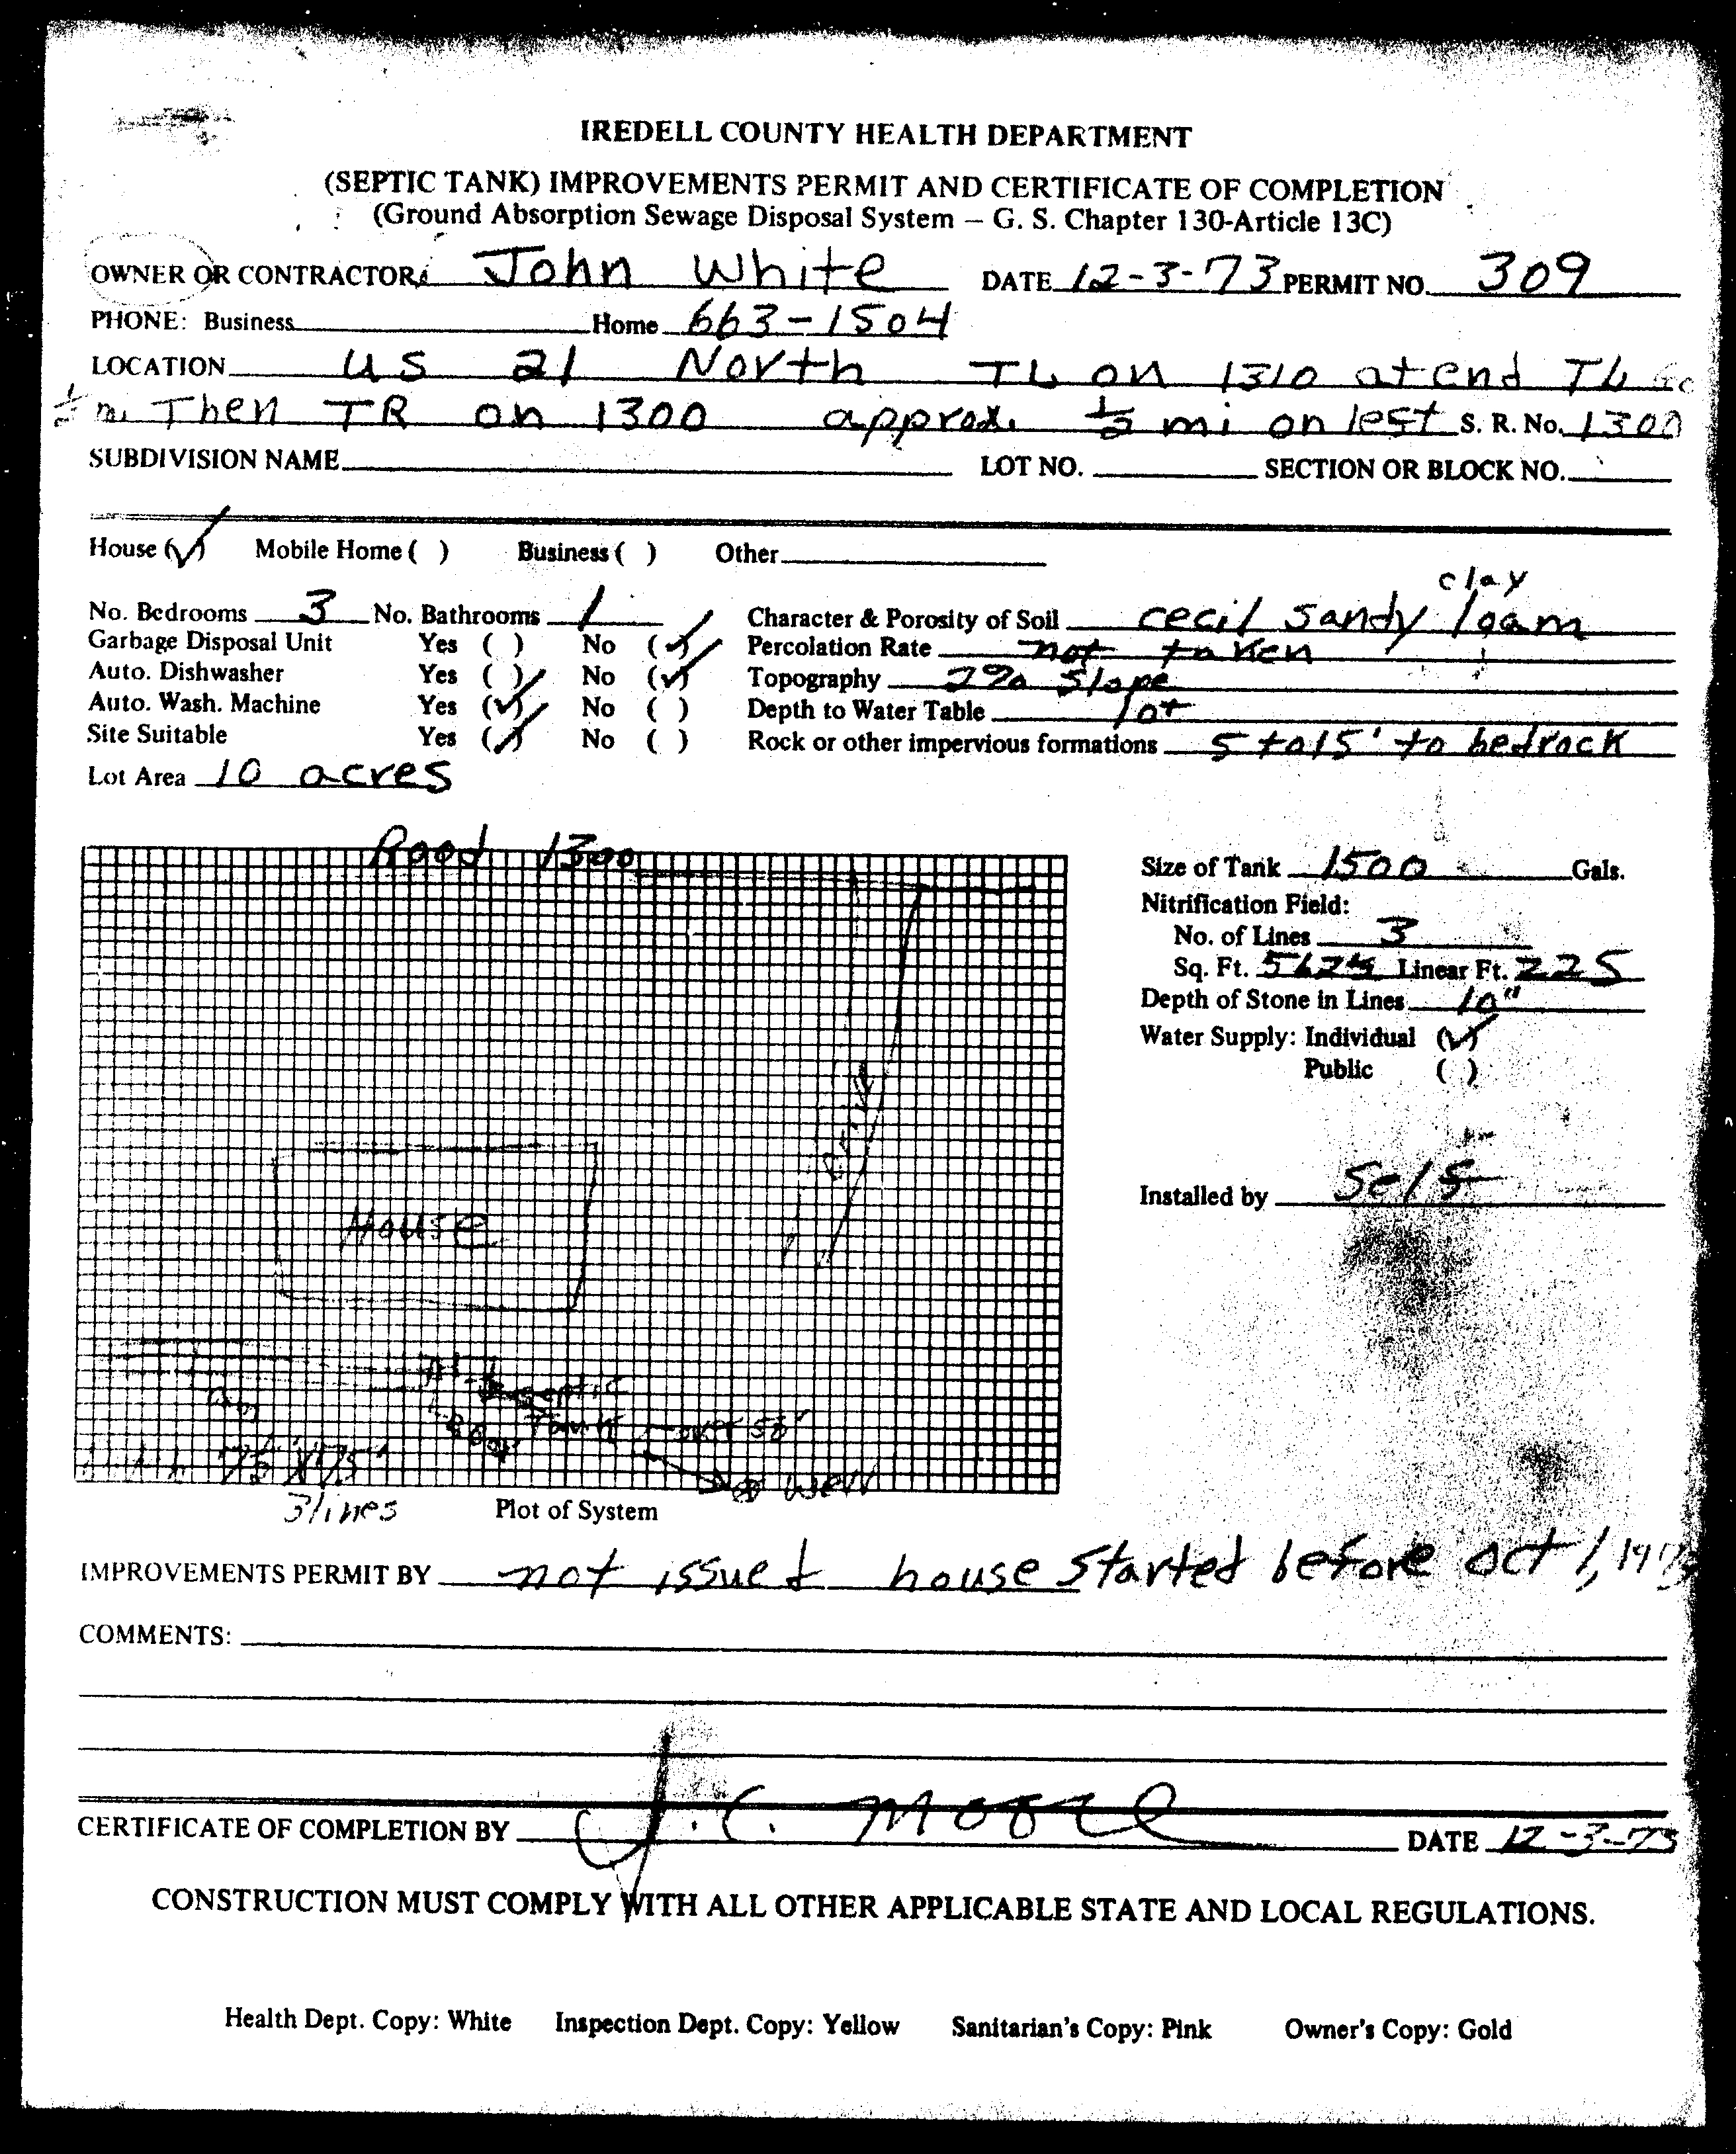 IREDELL COUNTY HEALTH DEPARTMENT
(SEPTIC TANK) IMPROVEMENTS PERMIT AND CERTIFICATE OF COMPLETION
(Ground Absorption Sewage Disposal System — G. S. Chapter 130-Article 13C)
OWNER OR CONTRACTOR: John White DATE 12-3-73 PERMIT NO. 309
PHONE: Business Home 663-1504
LOCATION US 21 North TL on 1310 at end TL Go
½ mi Then TR on 1300 approx. ½ mi on left S. R. No. 1300
SUBDIVISION NAME LOT NO. SECTION OR BLOCK NO.
House (✓) Mobile Home ( ) Business ( ) Other
clay
No. Bedrooms 3 No. Bathrooms 1 Character & Porosity of Soil cecil sandy loam
Garbage Disposal Unit Yes ( ) No (✓) Percolation Rate not taken
Auto. Dishwasher Yes ( ) No (✓) Topography 2% slope
Auto. Wash. Machine Yes (✓) No ( ) Depth to Water Table
Site Suitable Yes (✓) No ( ) Rock or other impervious formations 5 to 15' to bedrock
Lot Area 10 acres
Road 1300
Size of Tank 1500 Gals.
Nitrification Field:
No. of Lines 3
Sq. Ft. Linear Ft. 225
Depth of Stone in Lines 10"
Water Supply: Individual (✓)
Public ( )
Installed by Self
House
septic
Tank over 50'
75'
well
3 lines Plot of System
IMPROVEMENTS PERMIT BY not issued house started before oct 1, 1973
COMMENTS:
CERTIFICATE OF COMPLETION BY J. C. Moore DATE 12-3-73
CONSTRUCTION MUST COMPLY WITH ALL OTHER APPLICABLE STATE AND LOCAL REGULATIONS.
Health Dept. Copy: White Inspection Dept. Copy: Yellow Sanitarian's Copy: Pink Owner's Copy: Gold